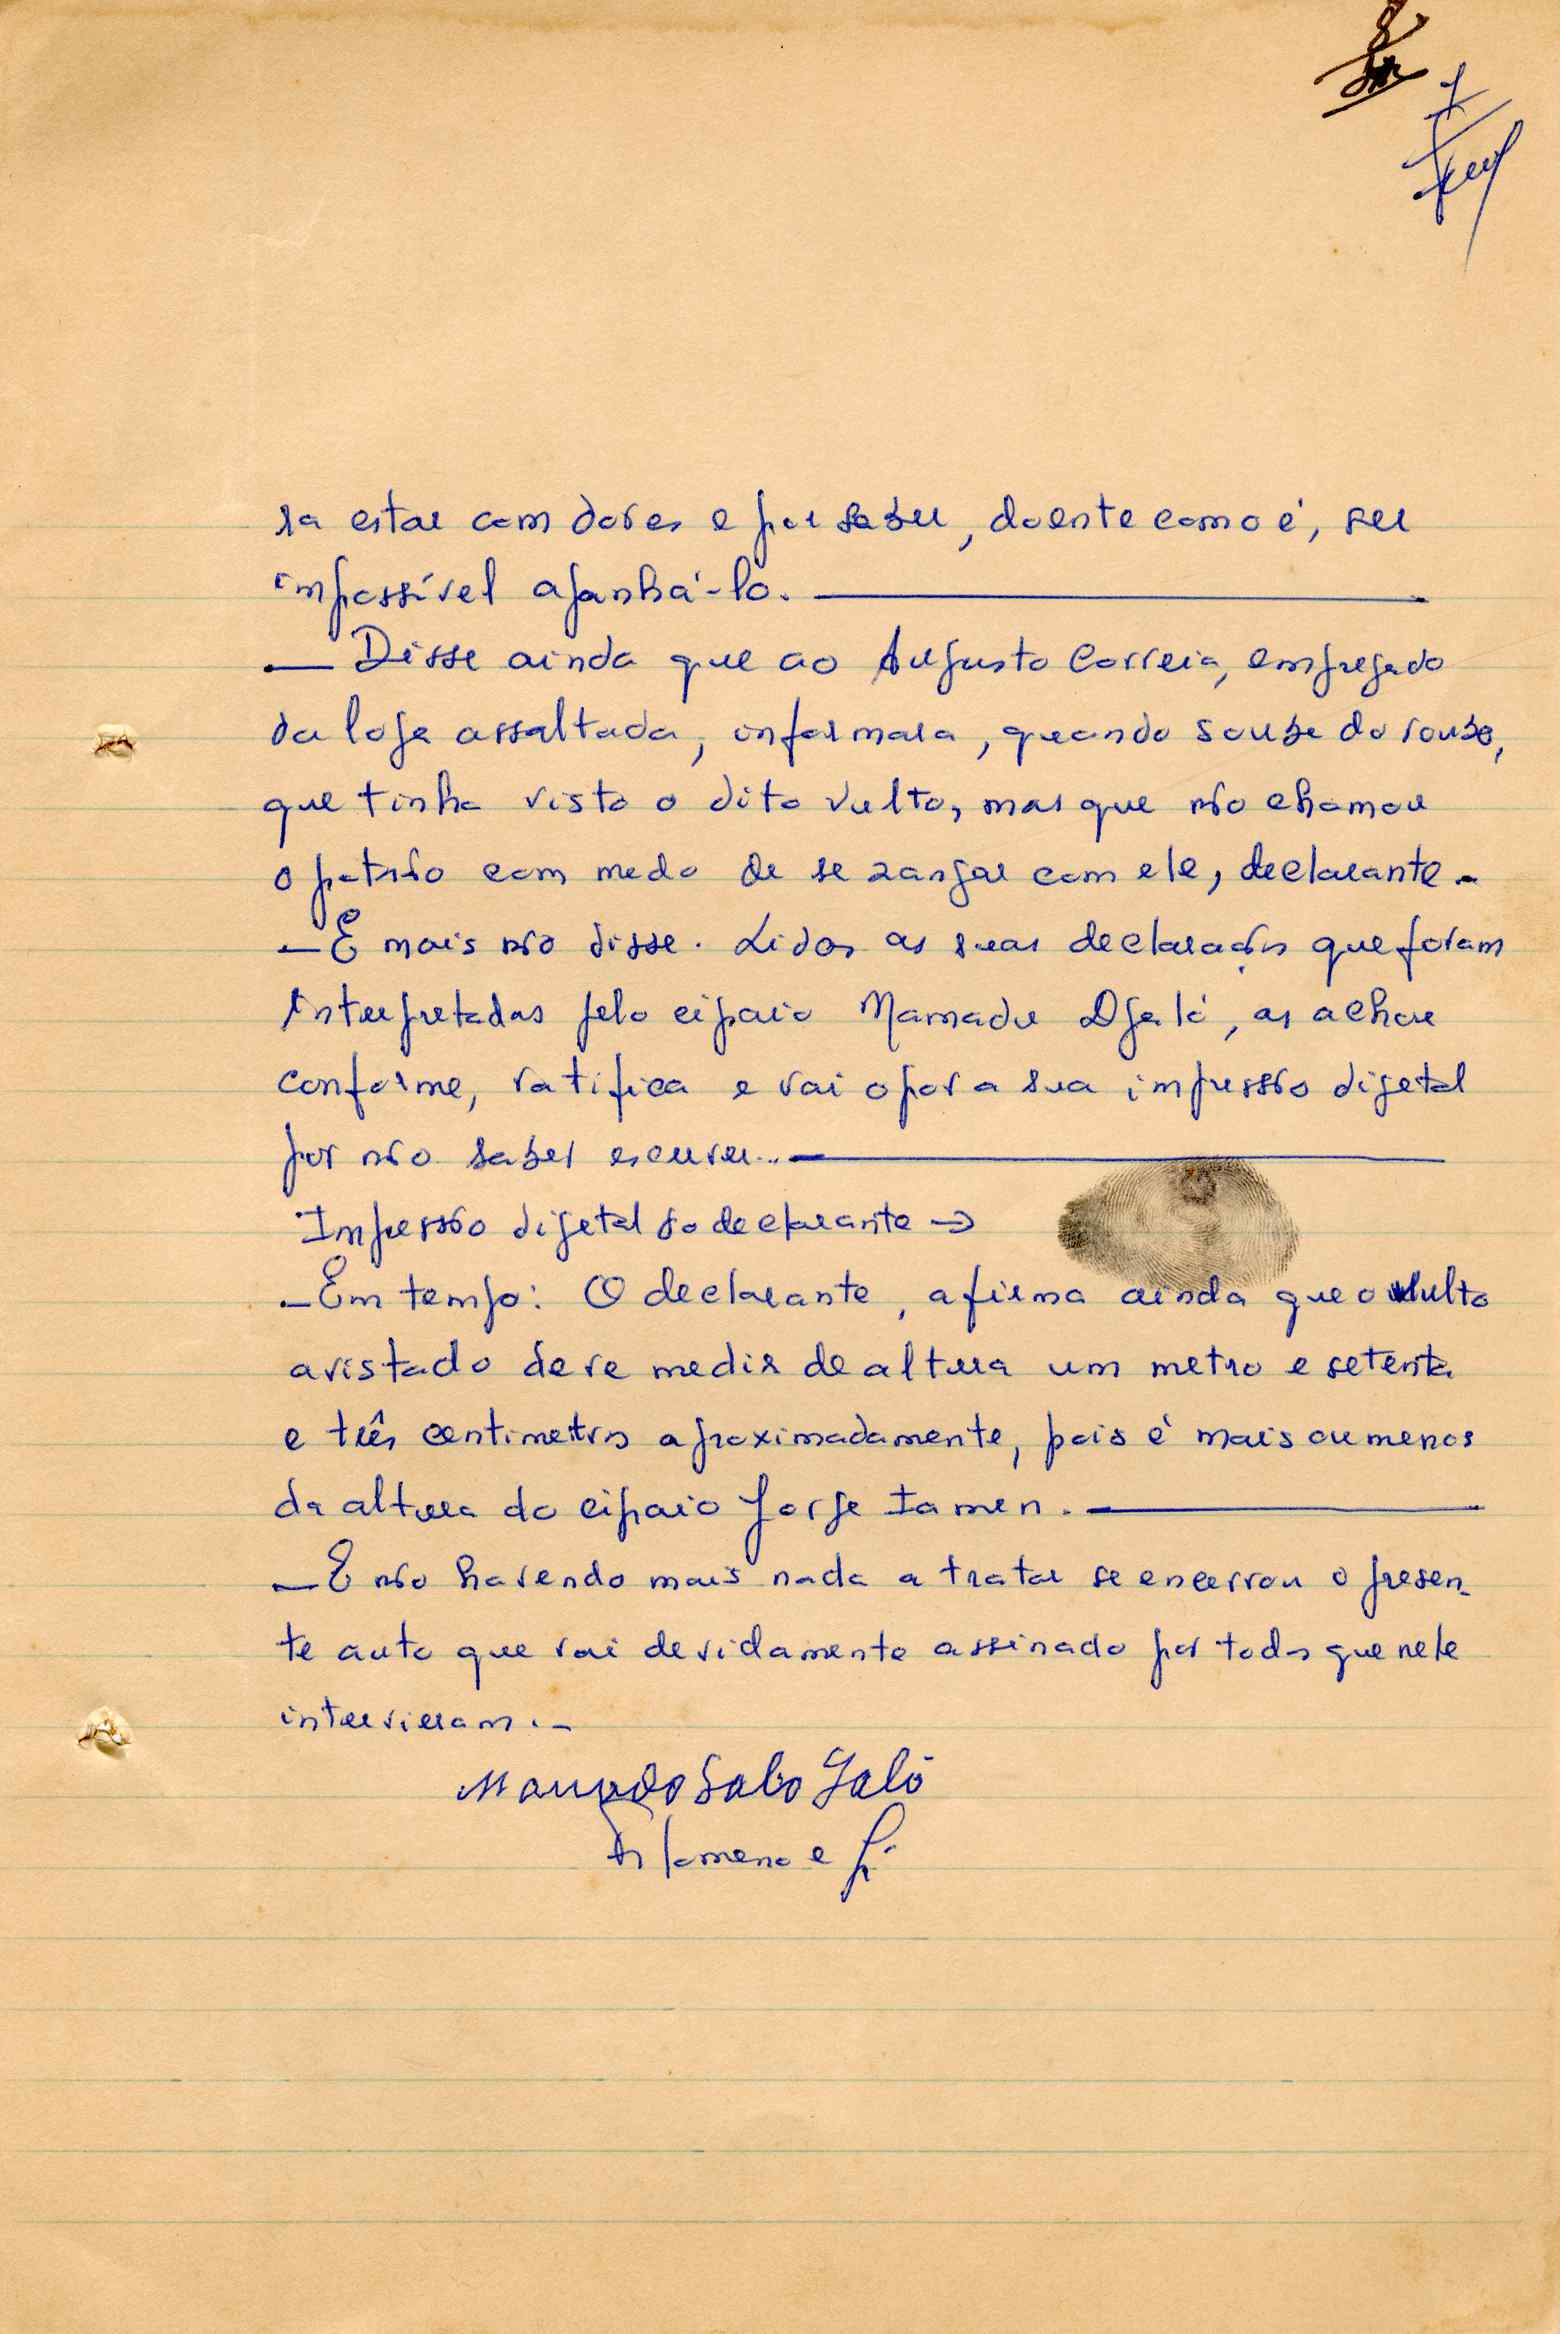 7
ra estar com dores e por saber, doente como é, ser
impossível apanhá-lo.
— Disse ainda que ao Augusto Correia, empregado
da loja assaltada, informara, quando soube do roubo,
que tinha visto o dito vulto, mas que não chamou
o patrão com medo de se zangar com ele, declarante.-
— E mais não disse. Lidas as suas declarações que foram
interpretadas pelo cipaio Mamadu Djaló, as achou
conforme, ratifica e vai opor a sua impressão digetal
por não saber escrever..
Impressão digetal do declarante →
— Em tempo: O declarante, afirma ainda que o vulto
avistado deve medir de altura um metro e setenta
e três centimetros aproximadamente, pois é mais ou menos
da altura do cipaio Jorge Iamen.
— E não havendo mais nada a tratar se encerrou o presen-
te auto que vai devidamente assinado por todos que nele
intervieram.-
Mamado Salio Jaló